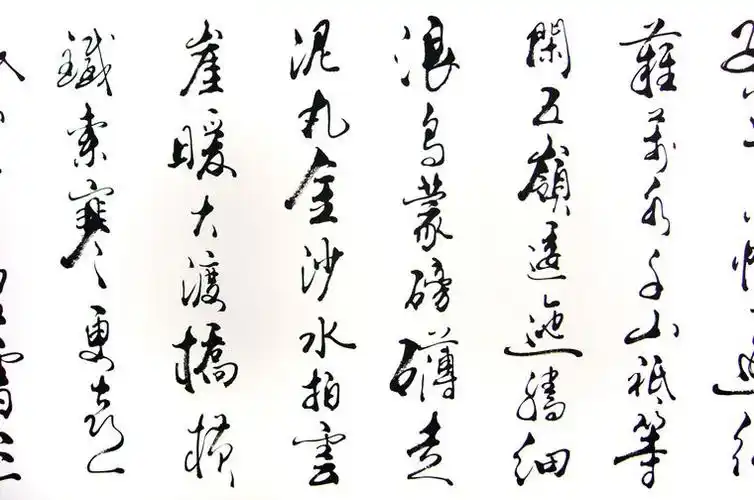 難萬水千山祇等
閑五嶺逶迤騰細
浪烏蒙磅礴走
泥丸金沙水拍雲
崖暖大渡橋橫
鐵索寒更喜